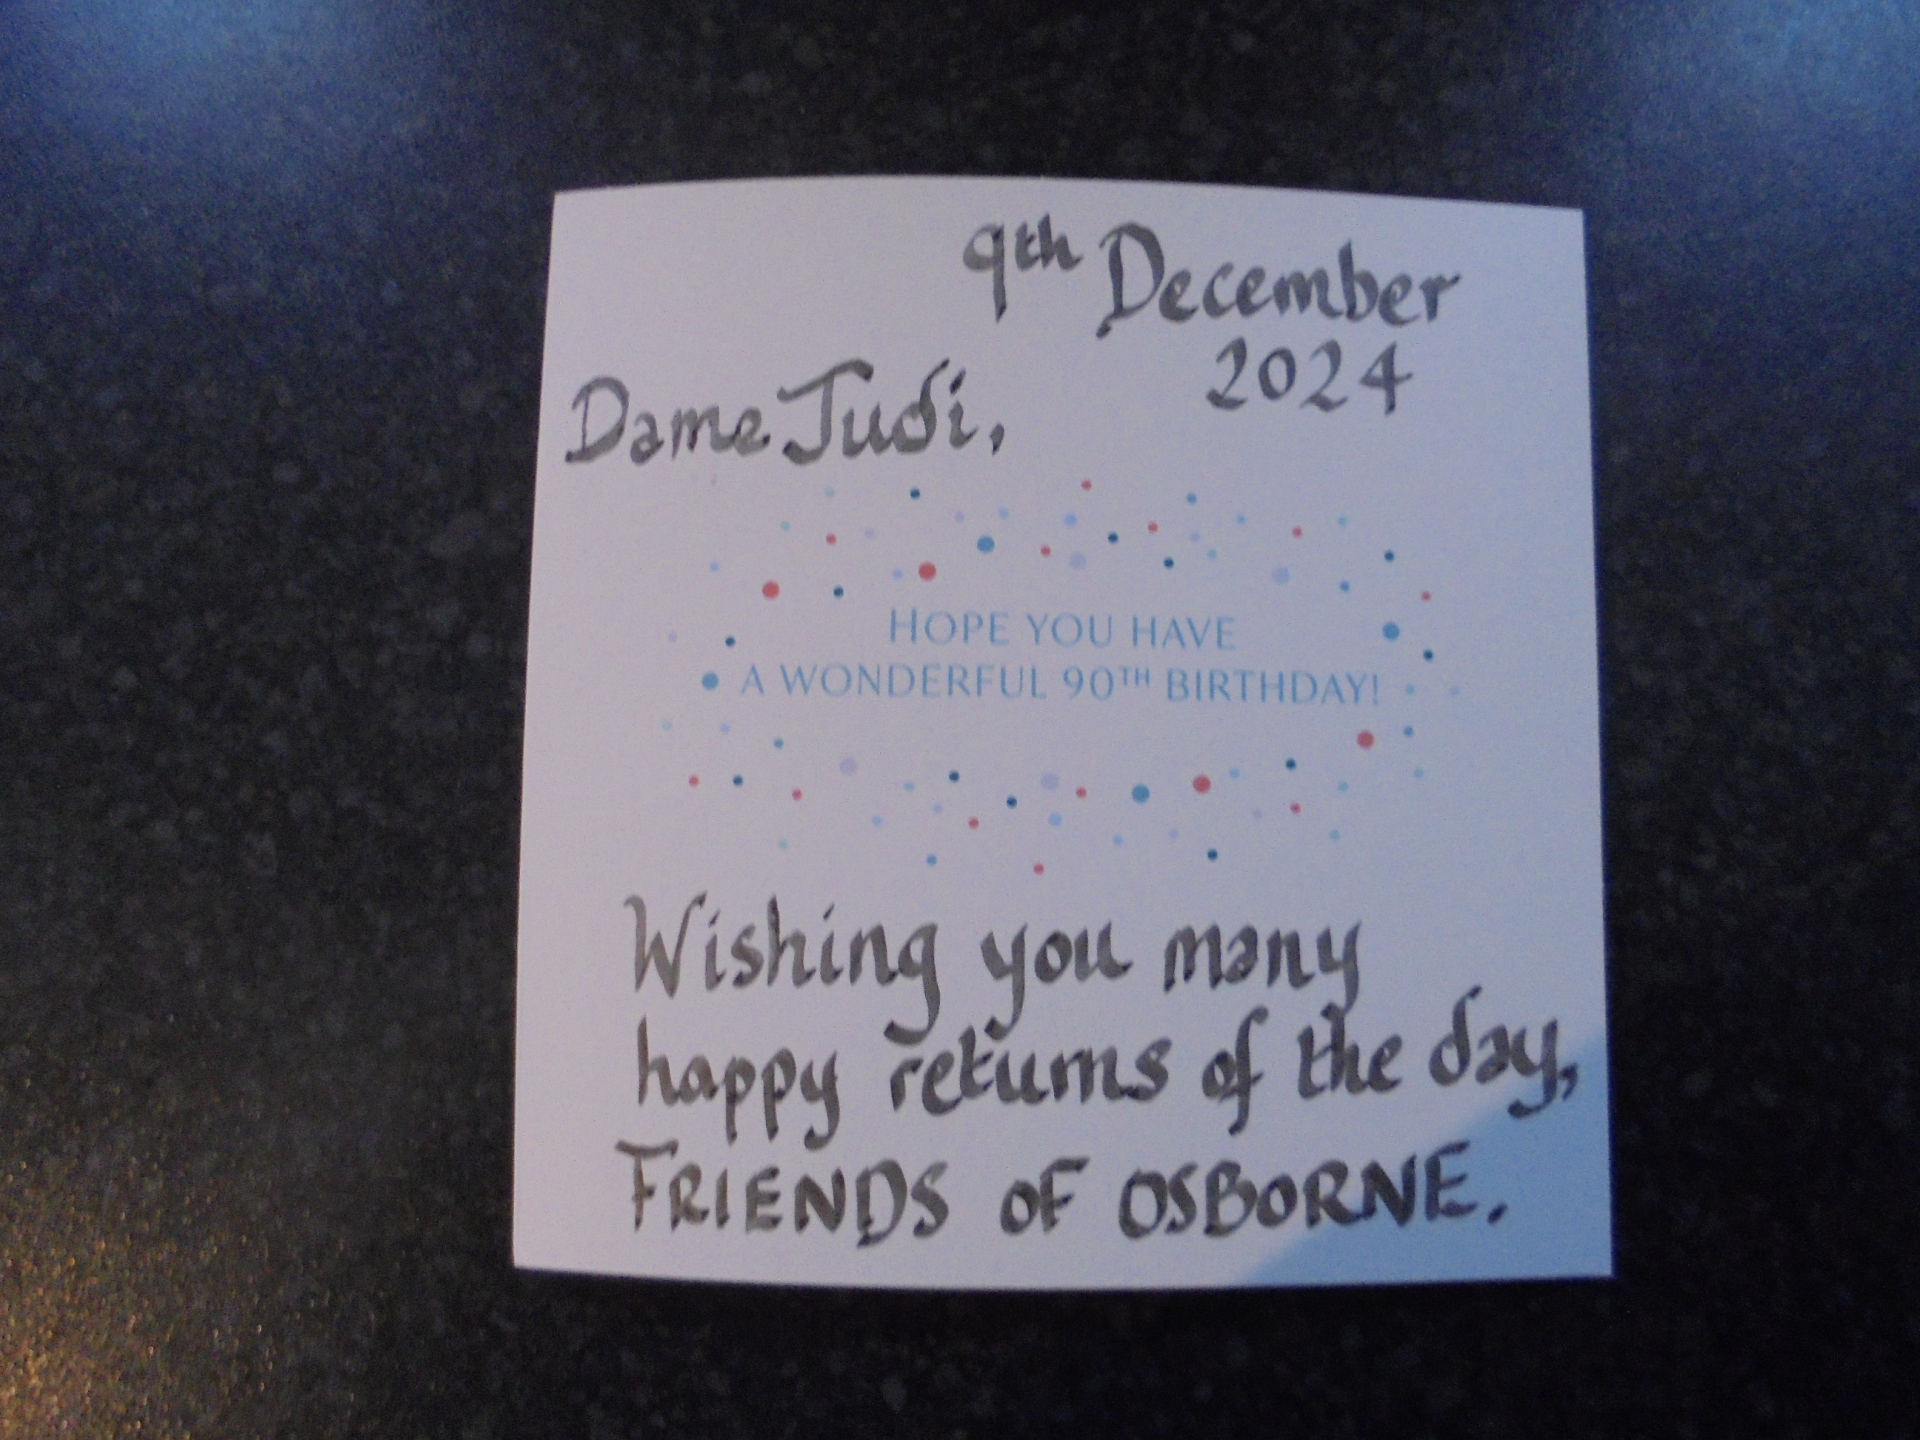 9th December
2024
Dame Judi,
HOPE YOU HAVE
A WONDERFUL 90TH BIRTHDAY!
Wishing you many
happy returns of the day,
FRIENDS OF OSBORNE.